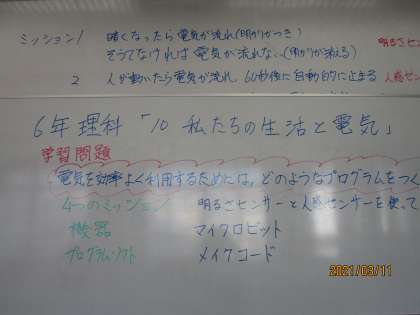 ミッション1 暗くなったら電気が流れ(明かりがつき) 明るさセン
そうでなければ電気が流れない(明かりが消える)
2 人が動いたら電気が流れ、60秒後に自動的に止まる 人感セン
6年理科「10 私たちの生活と電気」
学習問題
電気を効率よく利用するためには、どのようなプログラムをつく
4つのミッション 明るさセンサーと人感センサーを使って
機器 マイクロビット
プログラムソフト メイクコード
2021/03/11